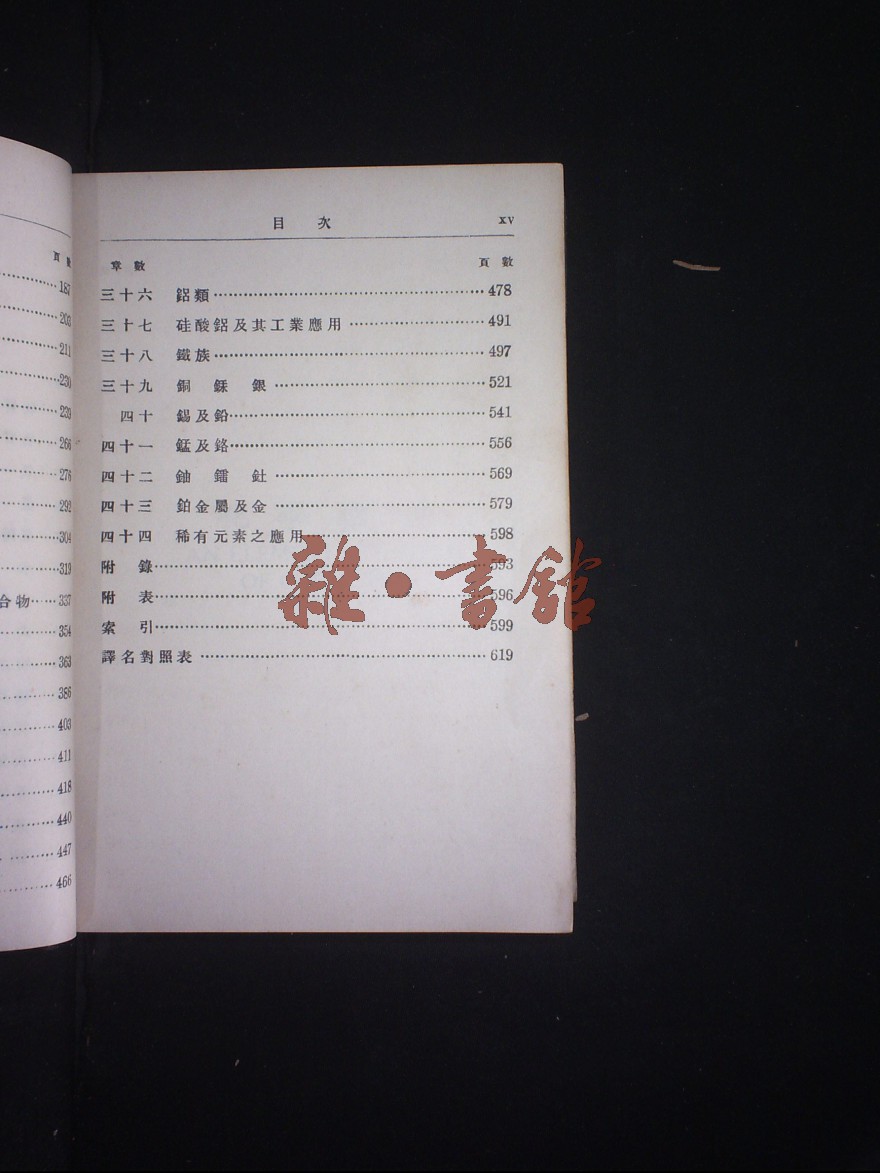 頁數
167
203
211
220
239
266
276
292
304
319
合物……337
354
363
386
403
411
418
440
447
466
目次 xv
章數 頁數
三十六 鋁類……478
三十七 硅酸鋁及其工業應用……491
三十八 鐵族……497
三十九 銅 銾 銀……521
四十 錫及鉛……541
四十一 錳及鉻……556
四十二 鈾 鐳 釷……569
四十三 鉑金屬及金……579
四十四 稀有元素之應用……598
附錄……593
附表……596
索引……599
譯名對照表……619
雜·書館